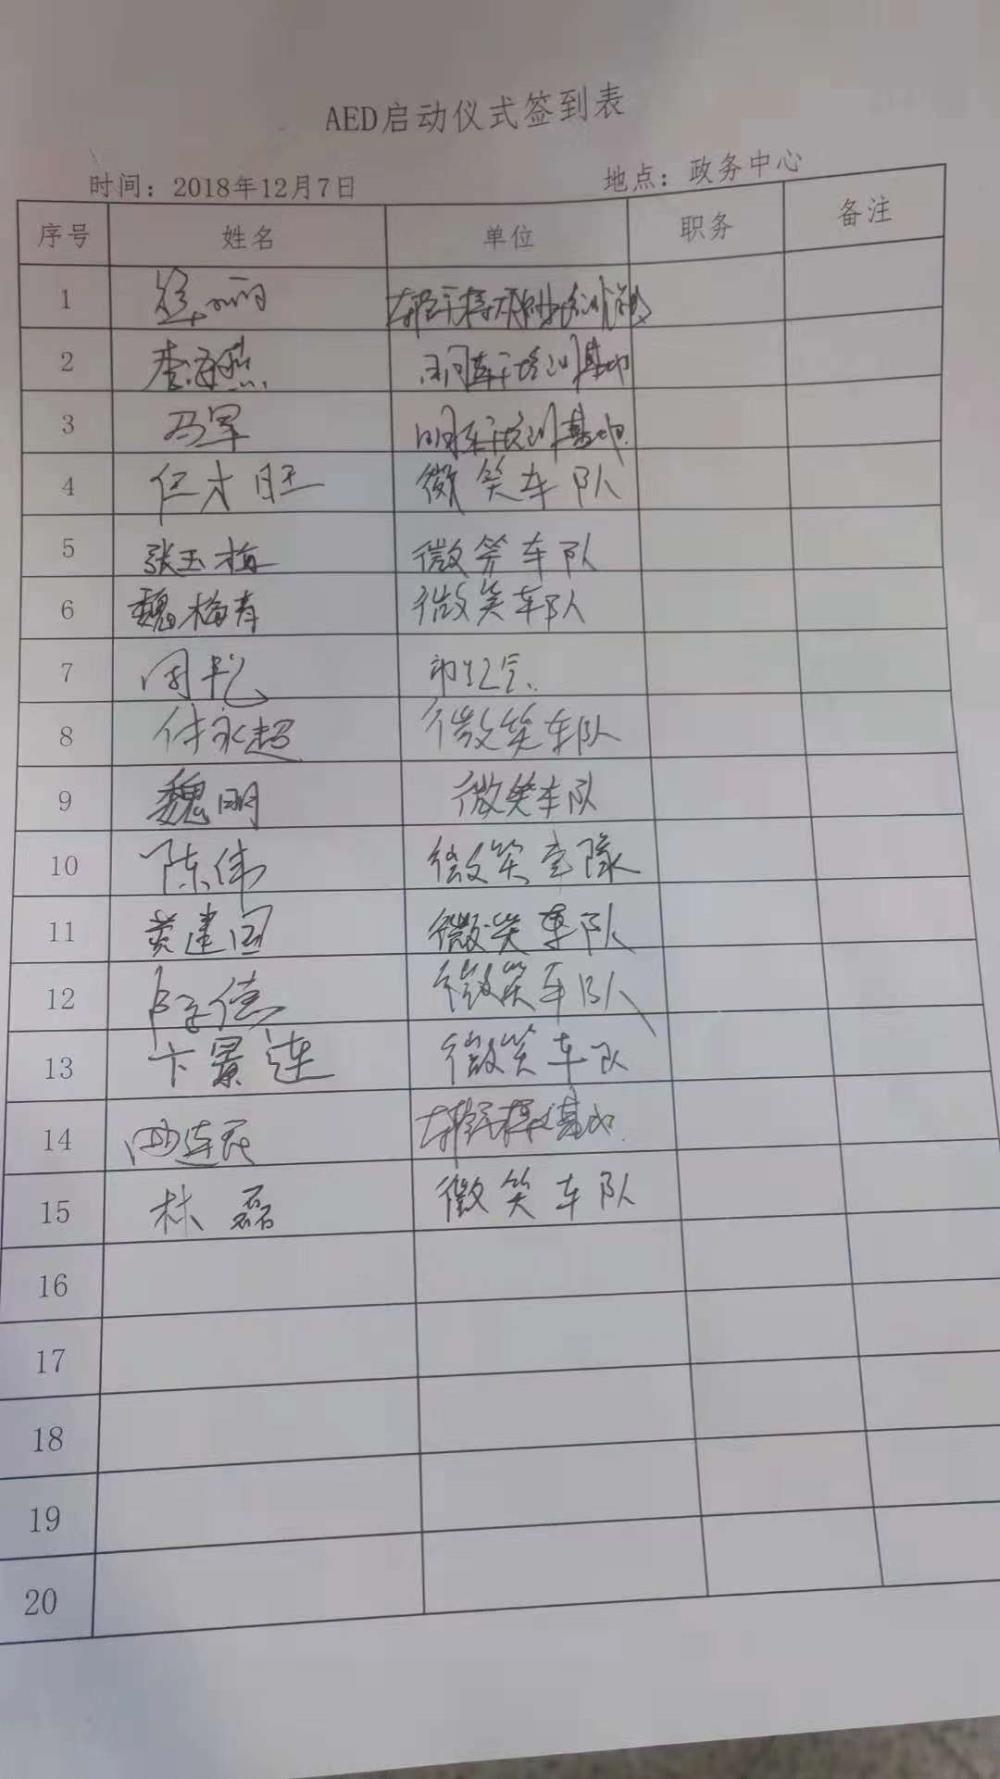 AED启动仪式签到表
时间：2018年12月7日 地点：政务中心
序号 姓名 单位 职务 备注
1
2 李海燕 培训基地
3 冯军 培训基地
4 仁才旺 微笑车队
5 张玉梅 微笑车队
6 魏梅青 微笑车队
7 周
8 付永超 微笑车队
9 魏明 微笑车队
10 陈伟 微笑车隊
11 黄建国 微笑车队
12 德 微笑车队
13 卞景连 微笑车队
14 连 基地
15 林磊 微笑车队
16
17
18
19
20